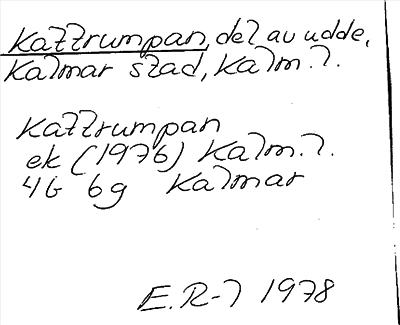 Kattrumpan, del av udde,
Kalmar stad, Kalm. l.
Kattrumpan
ek (1976) Kalm. l.
4G 6g Kalmar
E.R-l 1978